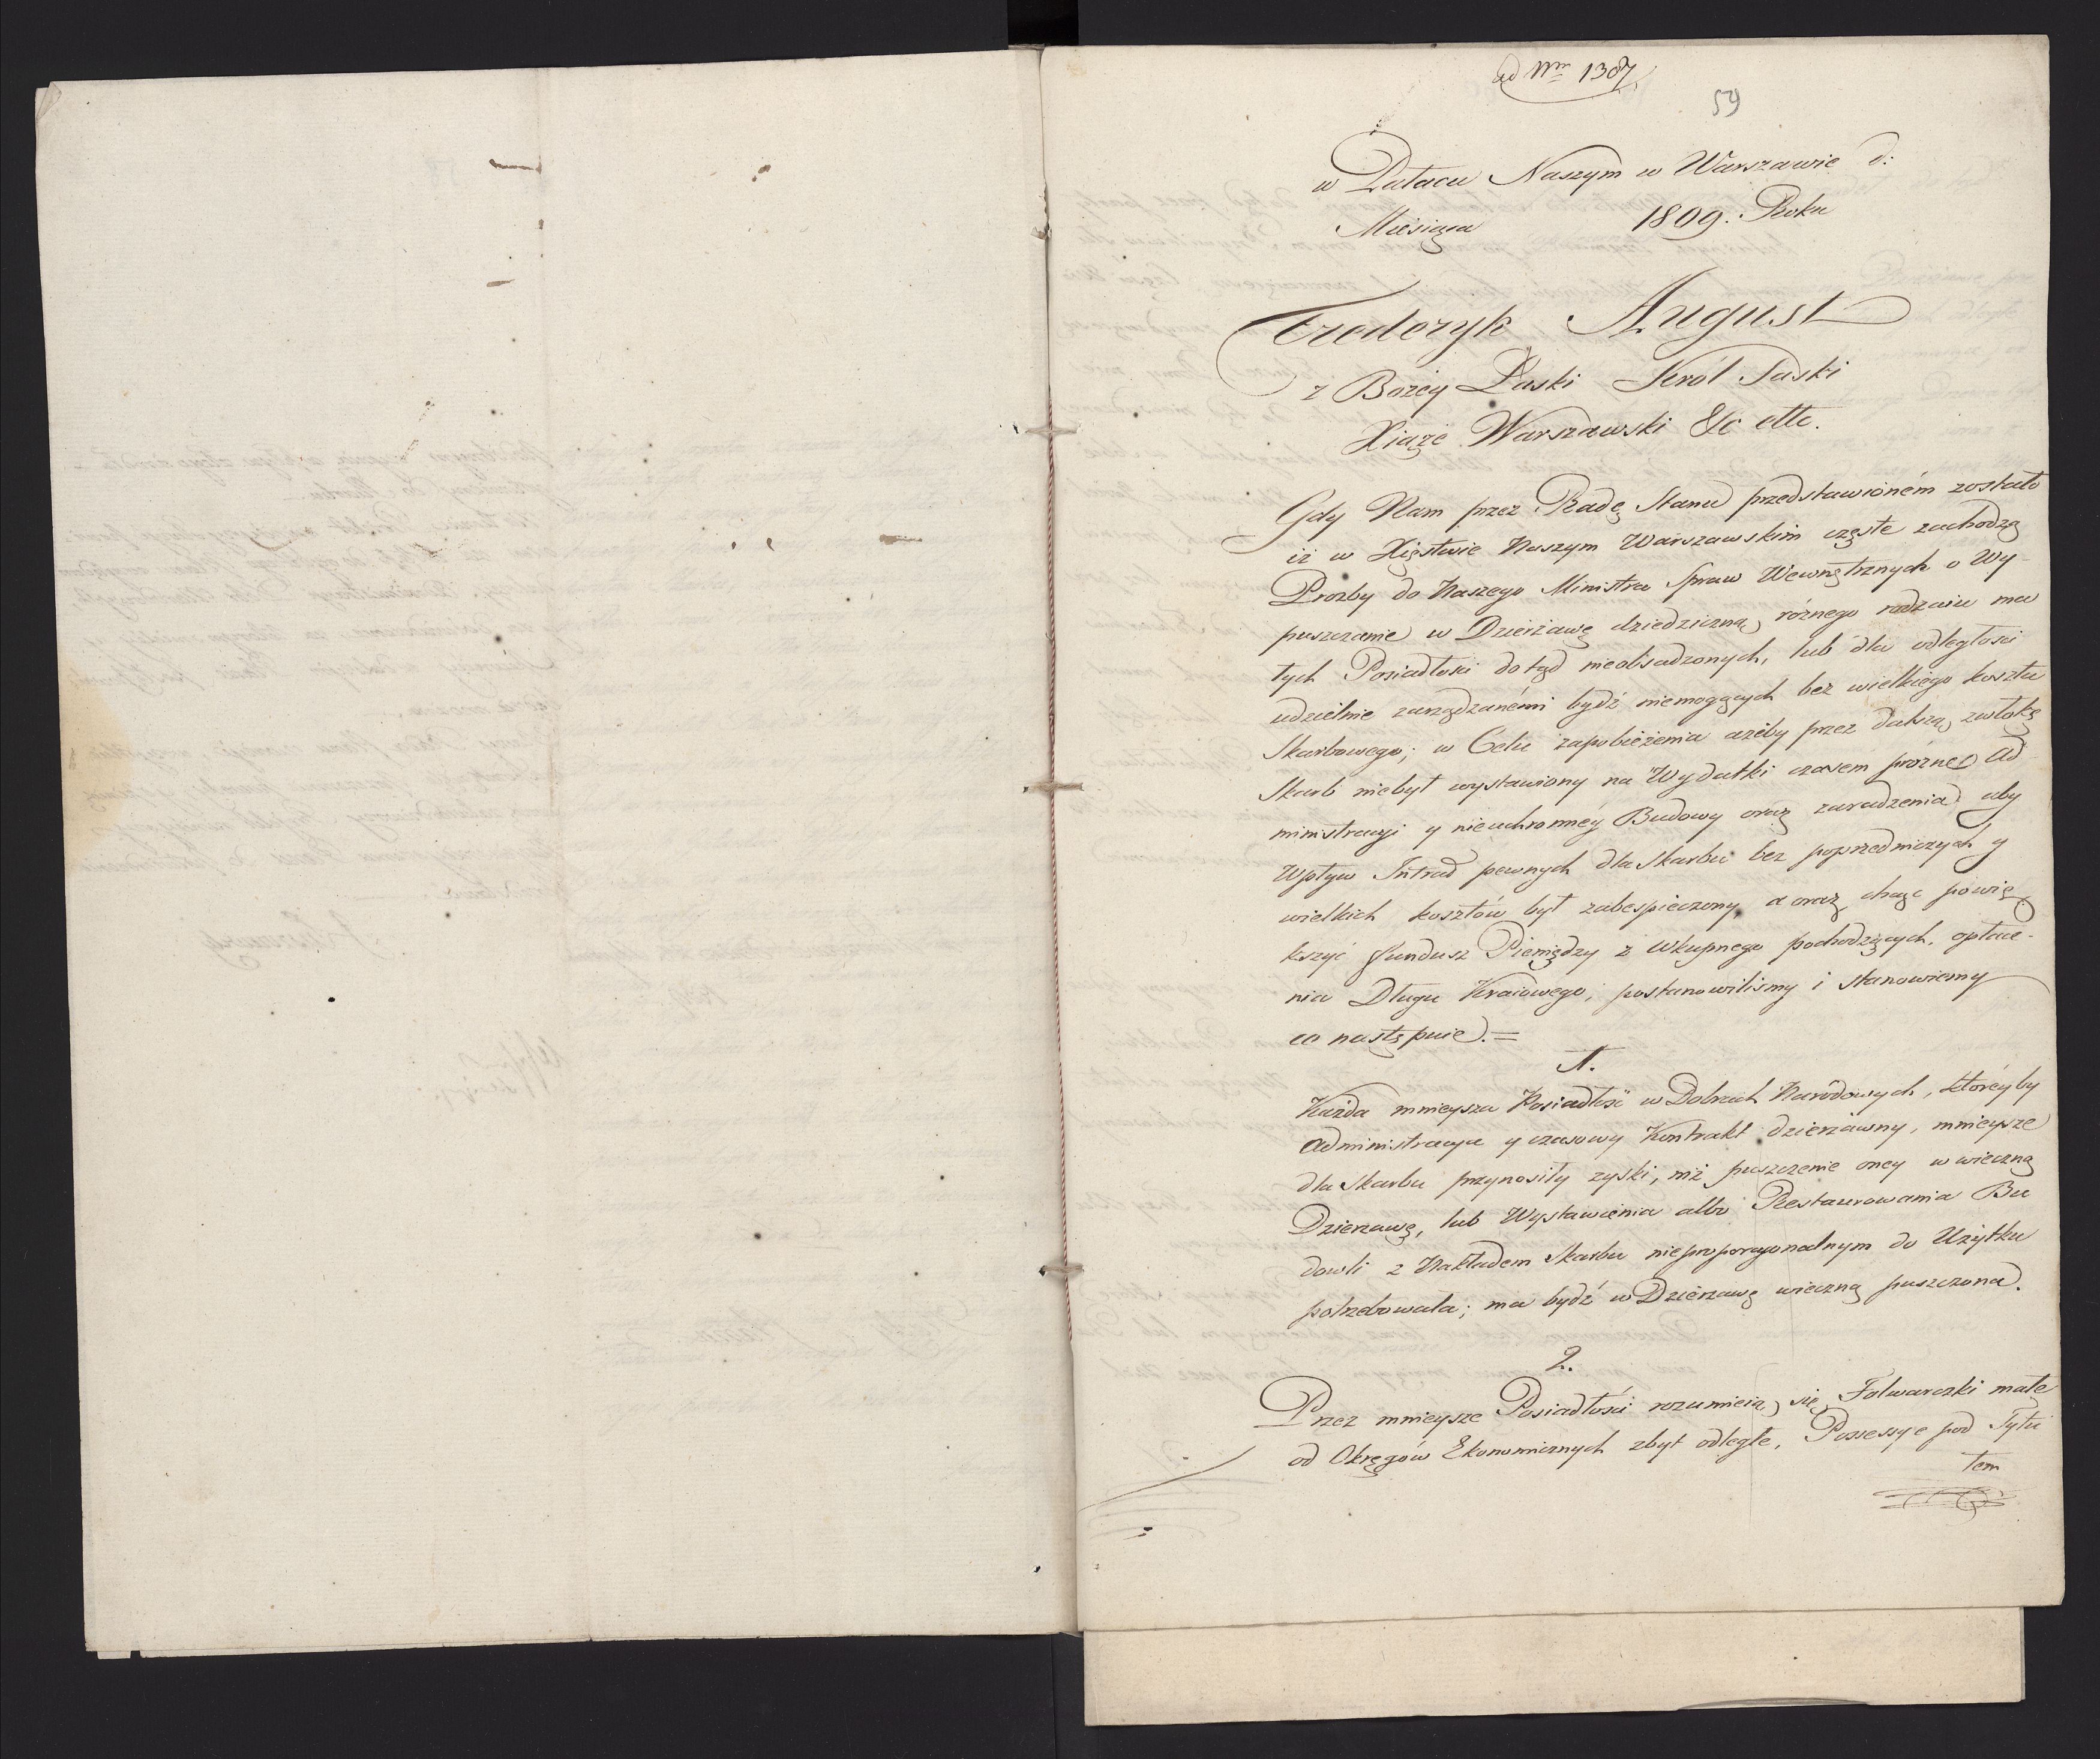 ad Nrm 1307
59
w Pałacu Naszym w Warszawie d:
Miesiąca 1809. Roku
Frederyk August
z Bożey Łaski Król Saski
Xiąże Warszawski &c ettc.
Gdy Nam przez Radę Stanu przedstawioném zostało
iż w Xięstwie Naszym Warszawskim częste zachodzą
Prozby do Naszego Ministra Spraw Wewnętrznych o Wy-
puszczanie w Dzierżawę dziedziczną różnego rodzaiu ma
łych Posiadłości dotąd nieobsadzonych, lub dla odległości
udzielnie zarządzanémi bydź niemogących bez wielkiego kosztu
Skarbowego; w Celu zapobieżenia ażeby przez dalszą zwłokę
Skarb niebył wystawiony na Wydatki czasem próżne Ad
ministracyi y nieuchronnéy Budowy oraz zaradzenia aby
Wpływ Intrad pewnych dla Skarbu bez poprzedniczych y
wielkich kosztów był zabespieczony a oraz chcąc powię
kszyć fundusz Pieniędzy z Wkupnego pochodzących, opłace-
nia Długu Kraiowego; postanowiliśmy i stanowiemy
co następuie.=
1.
Każda mnieysza Posiadłość w Dobrach Narodowych, któréyby
Administracya y czasowy Kontrakt dzierżawny, mnieysze
dla Skarbu przynosiły zyski, niż puszczenie oney w wieczną
Dzierżawę, lub Wystawienia albo Restaurowania Bu
dowli z Nakładem Skarbu nieproporcyonalnym do Użytku
potrzebowała; ma bydź w Dzierżawę wieczną puszczona.
2.
Przez mnieysze Posiadłości rozumieią się Folwarczki małe
od Okręgów Ekonomicznych zbyt odległe, Possessye pod Tytu
łem